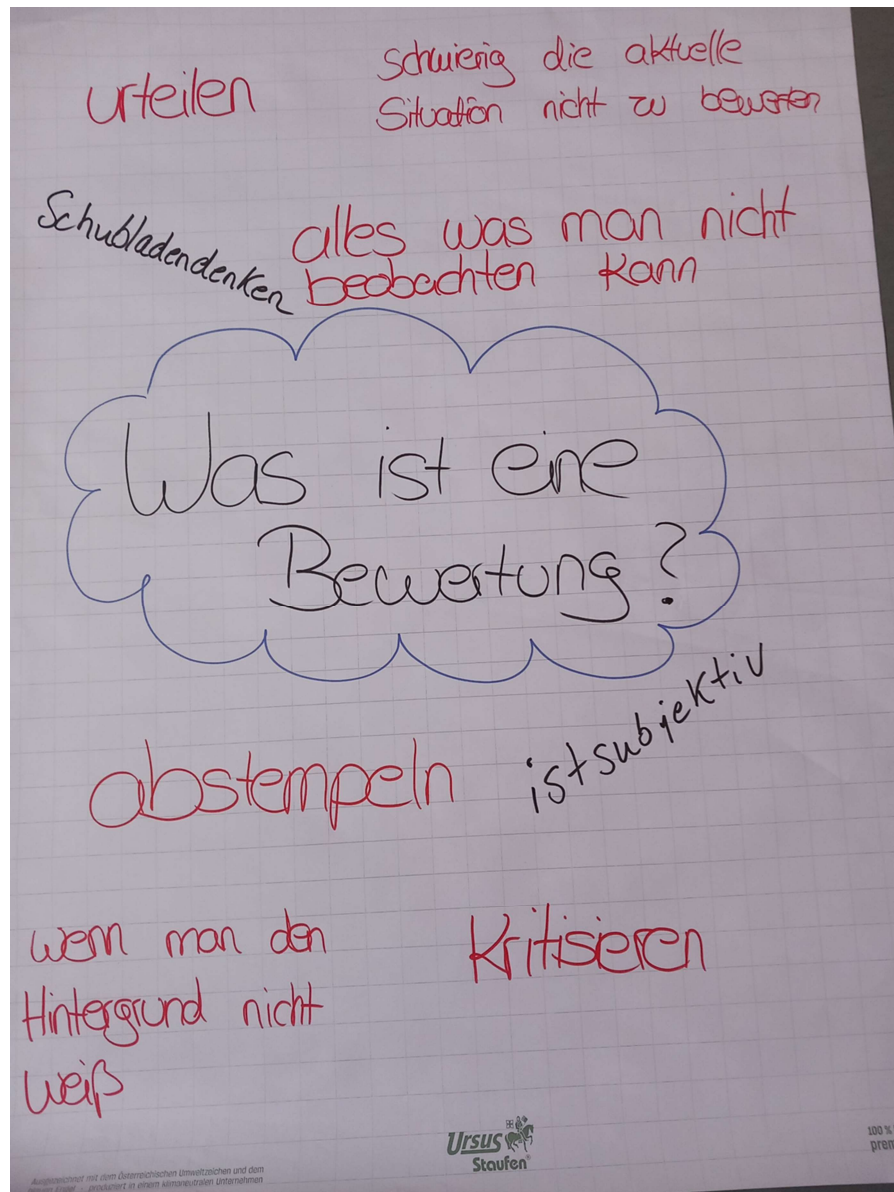 urteilen
schwierig die aktuelle
Situation nicht zu bewerten
Schubladendenken
alles was man nicht
beobachten kann
Was ist eine
Bewertung?
abstempeln
ist subjektiv
wenn man den
Hintergrund nicht
weiß
Kritisieren
Ursus
Staufen
100%
Ausgezeichnet mit dem Österreichischen Umweltzeichen und dem
produziert in einem klimaneutralen Unternehmen